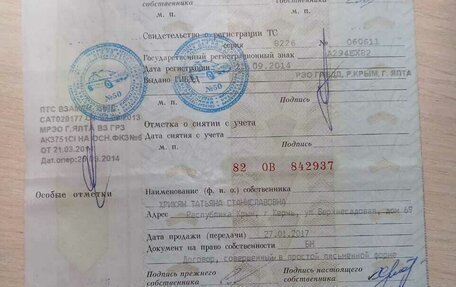 собственника
собственника
м. п.
м. п.
Свидетельство о регистрации ТС
серия 8226 № 060611
Государственный регистрационный знак
Дата регистрации .09.2014
Выдано ГИБДД РЭО ГИБДД, Р.КРЫМ, Г. ЯЛТА
м. п.
Подпись
Отметка о снятии с учета
Дата снятия с учета
м. п.
Подпись
№50
№50
ПТС ВЗАМЕН
САТ029177
МРЭО Г.ЯЛТА ВЗ ГРЗ
АК3751СІ НА ОСН.ФКЗ№6
ОТ 21.03.
Дат.опер:20.09.2014
82 ОВ 842937
Особые отметки
Наименование (ф. и. о.) собственника
ХРИКЯН ТАТЬЯНА СТАНИСЛАВОВНА
Адрес Республика Крым, г Керчь, ул Верхнесадовая, дом 69
Дата продажи (передачи) 27.01.2017
Документ на право собственности БН
Договор, совершенный в простой письменной форме
Подпись прежнего
собственника
Подпись настоящего
собственника
м. п.
м. п.